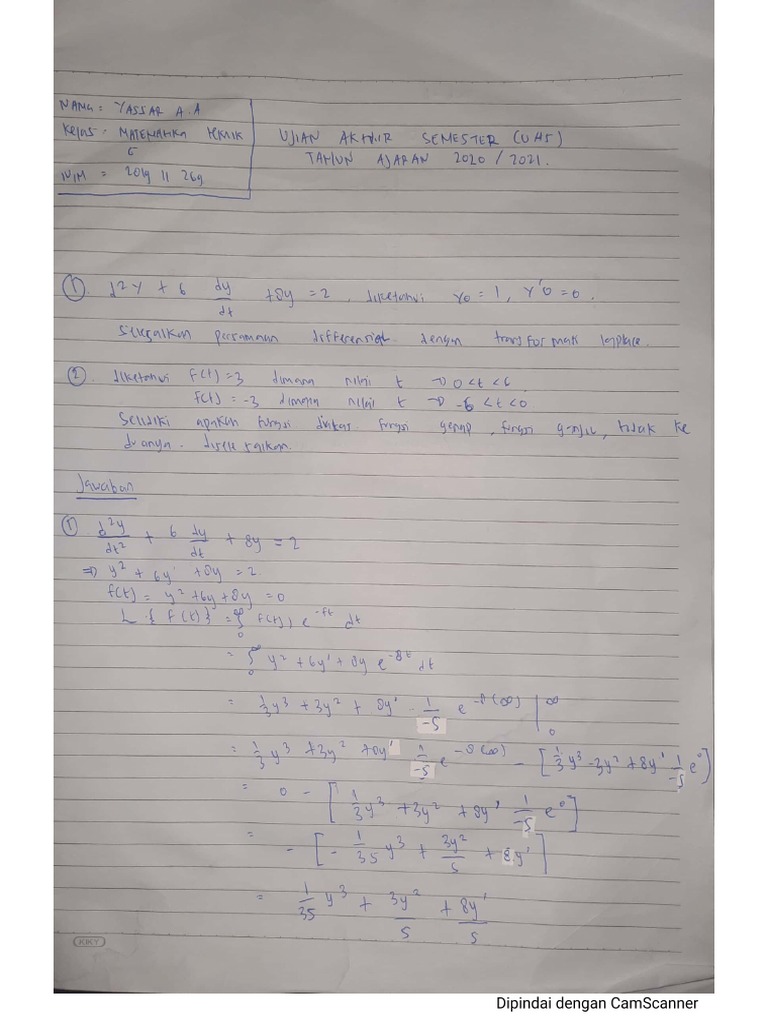 NAMA = YASSAR A.A
Kelas = MATEMATIKA TEKNIK
UJIAN AKHIR SEMESTER (UAS)
5
TAHUN AJARAN 2020 / 2021.
NIM = 2019 11 269
① d2y + 6 dy/dt + 8y = 2, diketahui Yo = 1, Y'o = 0.
Selesaikan persamaan differensial dengan transformasi laplace.
② diketahui F(t) = 3 dimana nilai t → 0 < t < 6
f(t) = -3 dimana nilai t → -6 < t < 0
Selidiki apakah fungsi diatas. fungsi genap, fungsi ganjil, tidak ke
duanya. diselesaikan.
Jawaban
① d²y/dt² + 6 dy/dt + 8y = 2
⇒ y² + 6y' + 8y = 2.
f(t) = y² + 6y + 8y = 0
L {F(t)} = ∫₀^∞ f(t) e dt
= ∫₀^∞ y² + 6y' + 8y e dt
= 1/3 y³ + 3y² + 8y' · 1/-s e |₀^∞
= 1/3 y³ + 3y² + 8y' 1/-s e - [1/3 y³ - 3y² + 8y' 1/-s e⁰]
= 0 - [1/3 y³ + 3y² + 8y' 1/-s e⁰]
= - [- 1/3s y³ + 3y²/s + 8y']
= 1/3s y³ + 3y²/s + 8y'/s
KIKY
Dipindai dengan CamScanner